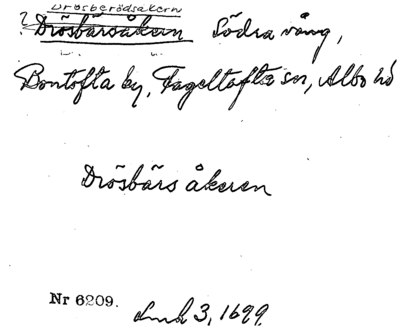 Drösberödsåkern
? Drösbärsåkern Södra vång,
Bontofta by, Fageltofta sn, Albo hd
Drösbärs åkeren
Nr 6209. Lmk 3, 1699.